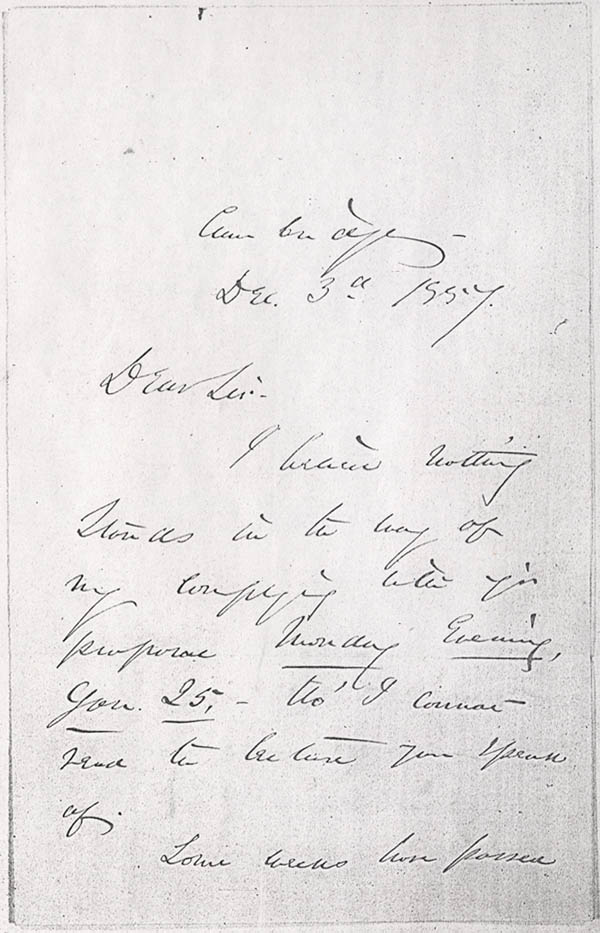 Cambridge -
Dec. 3d 1857.
Dear Sir -
I believe nothing
stands in the way of
my complying with yr
proposal Monday Evening,
Jan. 25, - tho' I cannot
read the lecture you speak
of.
Some weeks have passed